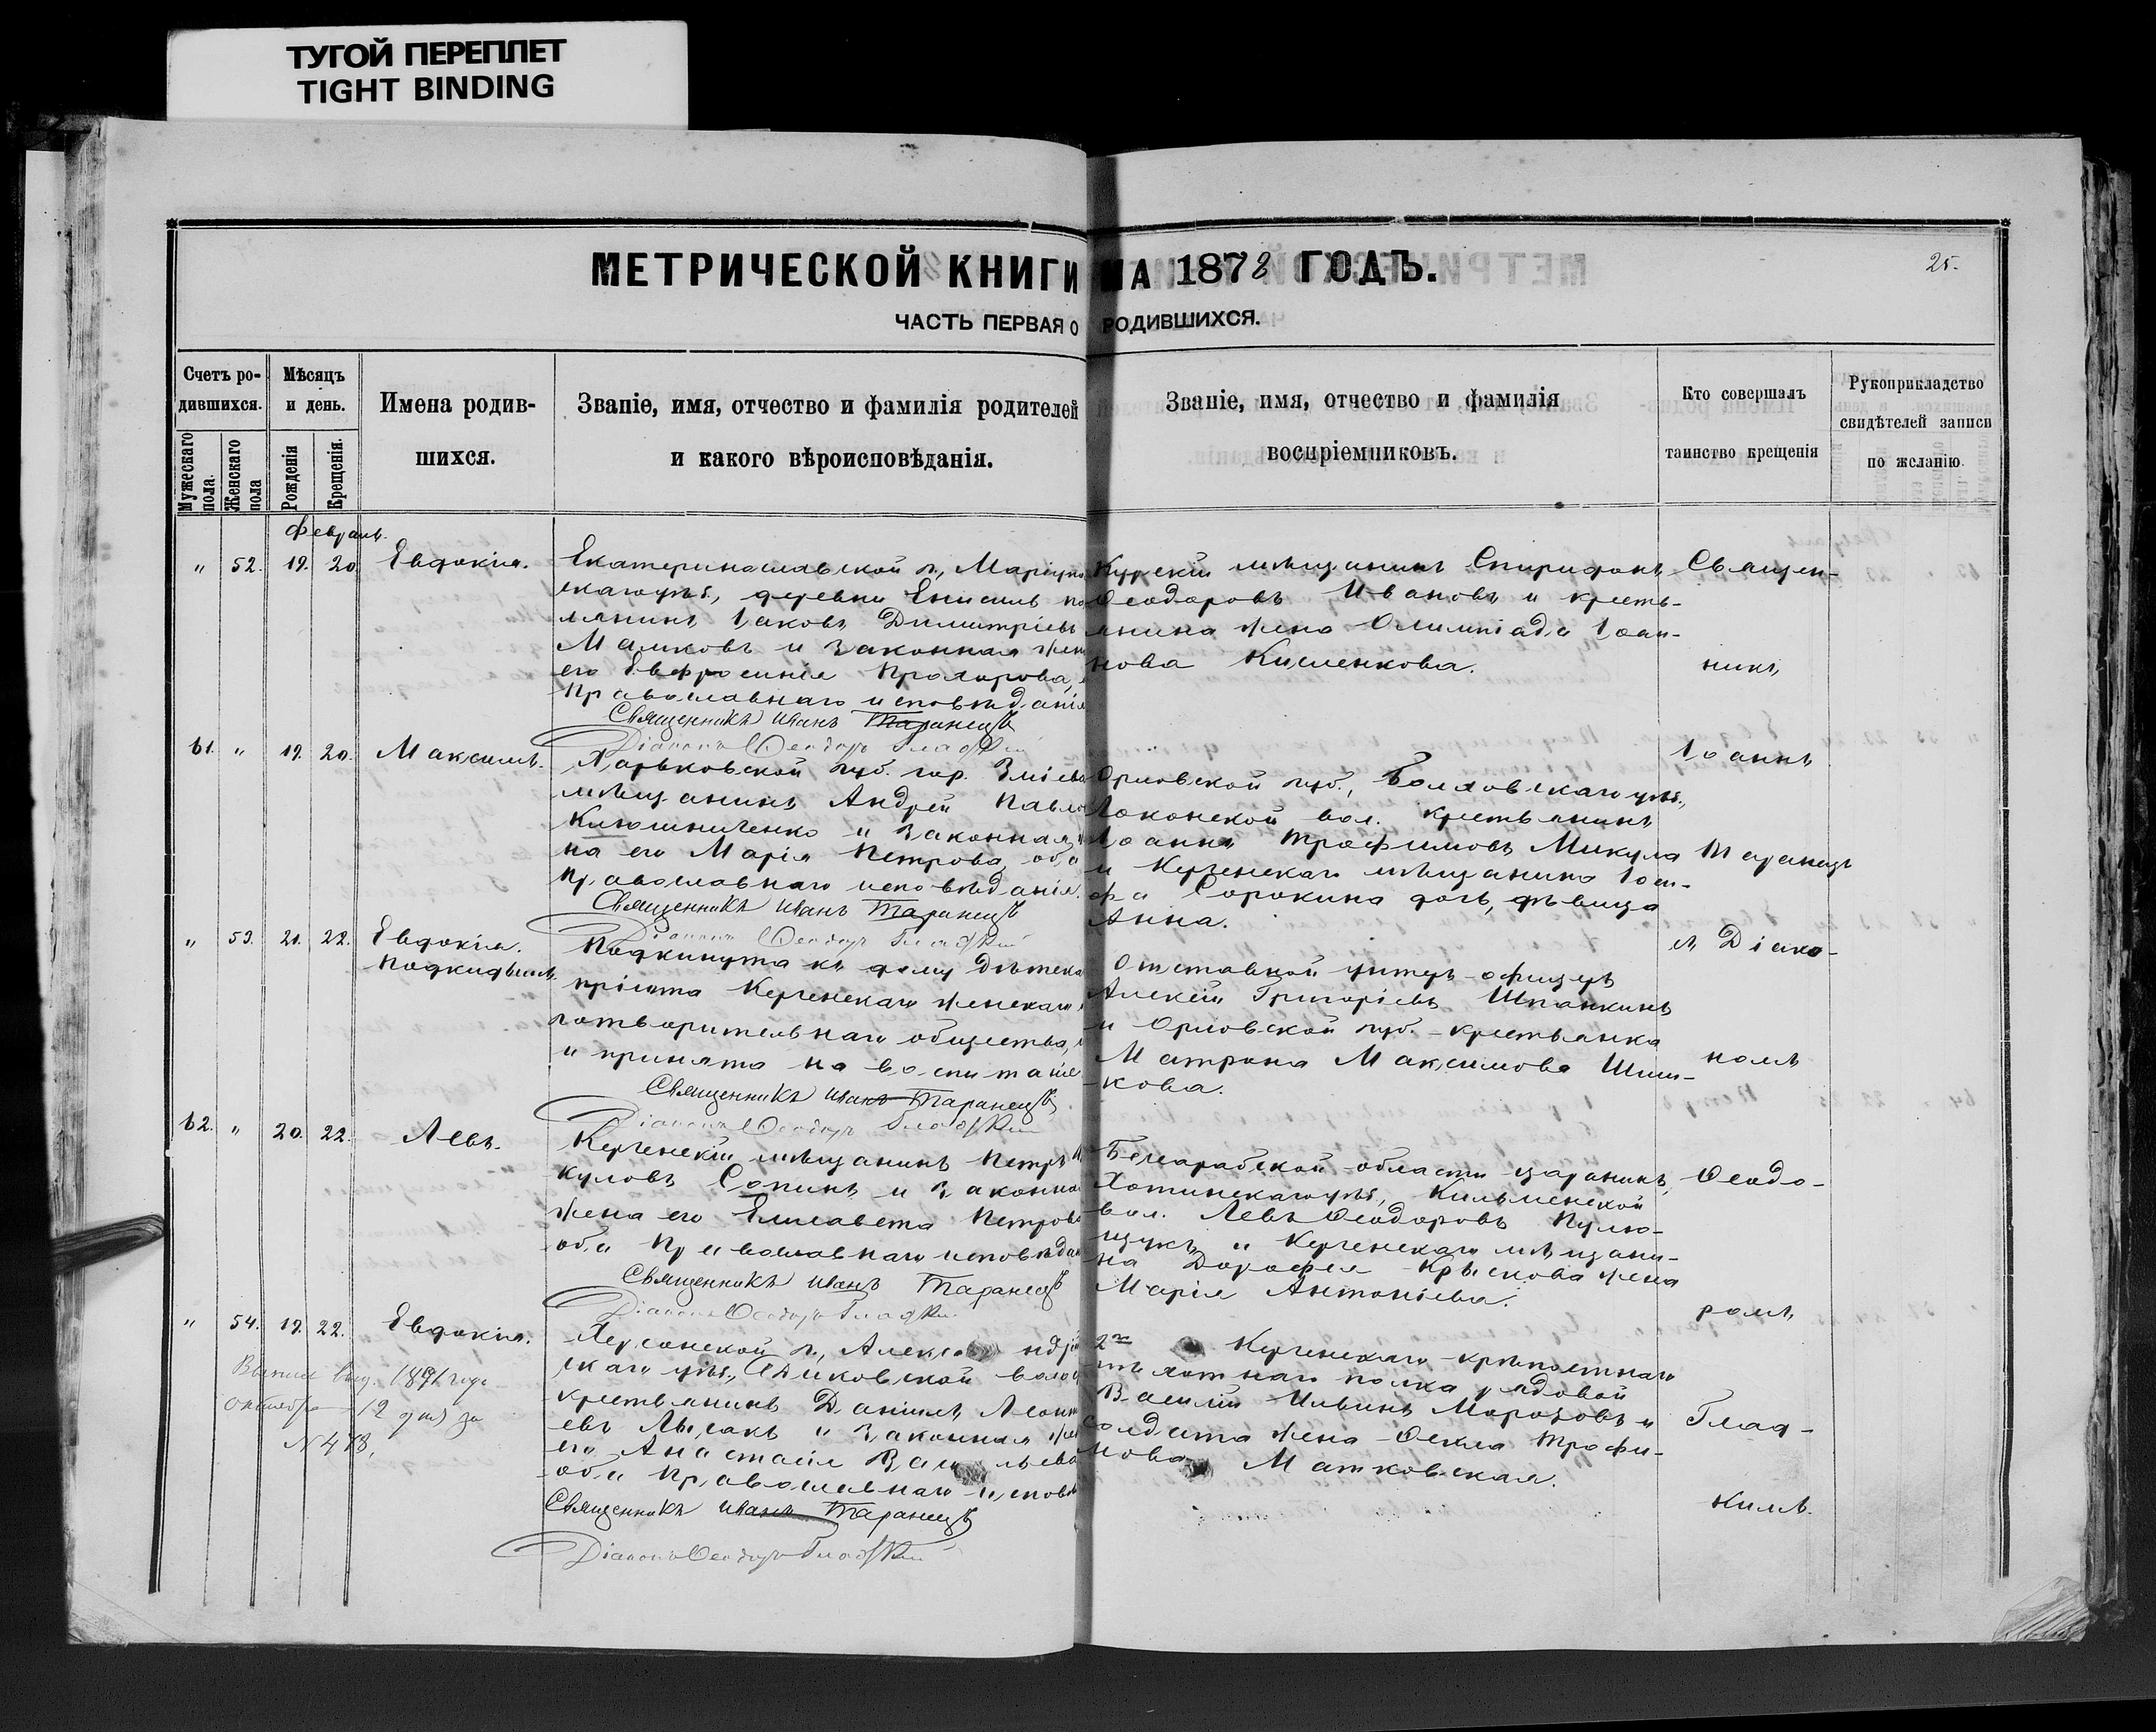 ТУГОЙ ПЕРЕПЛЕТ
TIGHT BINDING
МЕТРИЧЕСКОЙ КНИГИ НА 1878 ГОДЪ.
25.
ЧАСТЬ ПЕРВАЯ О РОДИВШИХСЯ.
Счетъ ро-
дившихся.
Мужескаго пола.
Женскаго пола
Мѣсяцъ
и день.
Рожденія
Крещенія.
Имена родив-
шихся.
Званіе, имя, отчество и фамилія родителей
и какого вѣроисповѣданія.
Званіе, имя, отчество и фамилія
воспріемниковъ.
Кто совершалъ
таинство крещенія
Рукоприкладство
свидѣтелей записи
по желанію.
Февраль.
" 52. 19. 20. Евдокія.
Екатеринославской г., Маріупо
скаго уѣз., деревни
лянинъ Іаковъ Димитріевъ
Маликовъ и законная жен
его Евфросинія Прохорова,
Православнаго исповѣданія
Священникъ Иванъ Таранецъ
Діаконъ Ѳеодоръ Гладкій
Курскій мѣщанинъ Спиридонъ
Ѳеодоровъ Ивановъ и кресть-
янина жена Олимпіада Іоан-
нова Кисленкова.
61. " 19. 20. Максимъ.
Харьковской губ. гор. Зміева
мѣщанинъ Андрей Павло
Клюшниченко и законная
на его Марія Петрова, оба
Православнаго исповѣданія.
Священникъ Иванъ Таранецъ
Діаконъ Ѳеодоръ Гладкій
Орловской губ., Болховскаго уѣз.,
вол. крестьянинъ
Іоаннъ Трофимовъ Микула
и Керченскаго мѣщанина Іоси-
фа Сорокина дочь, дѣвица
Анна.
" 53. 21. 22. Евдокія.
Подкидышъ.
Подкинута къ дому дѣтска
пріюта Керченскаго женскаго
готворительнаго общества,
и принята на воспитаніе
Священникъ Иванъ Таранецъ
Діаконъ Ѳеодоръ Гладкій
Отставной унтеръ-офицеръ
Алексій Григоріевъ Шпанкинъ
и Орловской губ. крестьянка
Матрона Максимова Шиш-
кова.
62. " 20. 22. Левъ.
Керченскій мѣщанинъ Петръ
куловъ Сопинъ и законна
жена его Елисавета Петрова
оба Православнаго исповѣдан
Священникъ Иванъ Таранецъ
Діаконъ Ѳеодоръ Гладкій
Бессарабской области царанинъ,
Хотинскаго уѣз., Кильменской
вол. Левъ Ѳеодоровъ Пулю-
щукъ и Керченскаго мѣщани-
на Дорофея Крыскова жена
Марія Антоніева.
" 54. 19. 22. Евдокія.
Выписъ выд. 1891 года
октября 12 дня за
N 478,
Херсонской г., Александрій
скаго уѣз., волос
крестьянинъ Даніилъ Леонт
евъ Лысакъ и законная жен
его Анастасія Васильева
оба Православнаго исповѣ
Священникъ Иванъ Таранецъ
Діаконъ Ѳеодоръ Гладкій
2го Керченскаго крѣпостнаго
пѣхотнаго полка рядовой
Василій Ильинъ Морозовъ и
солдата жена Ѳекла Трофи-
мова Матковская.
Священ-
никъ
Іоаннъ
Таранецъ
съ Діако-
номъ
Ѳеодо-
ромъ
Глад-
кимъ.